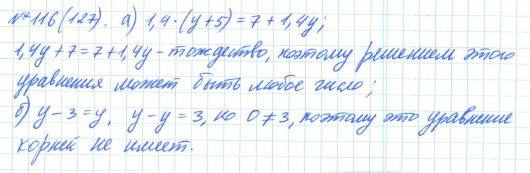 №116(127). а) 1,4·(y+5)=7+1,4y;
1,4y+7=7+1,4y - тождество, поэтому решением этого
уравнения может быть любое число;
б) y-3=y, y-y=3, но 0≠3, поэтому это уравнение
корней не имеет.